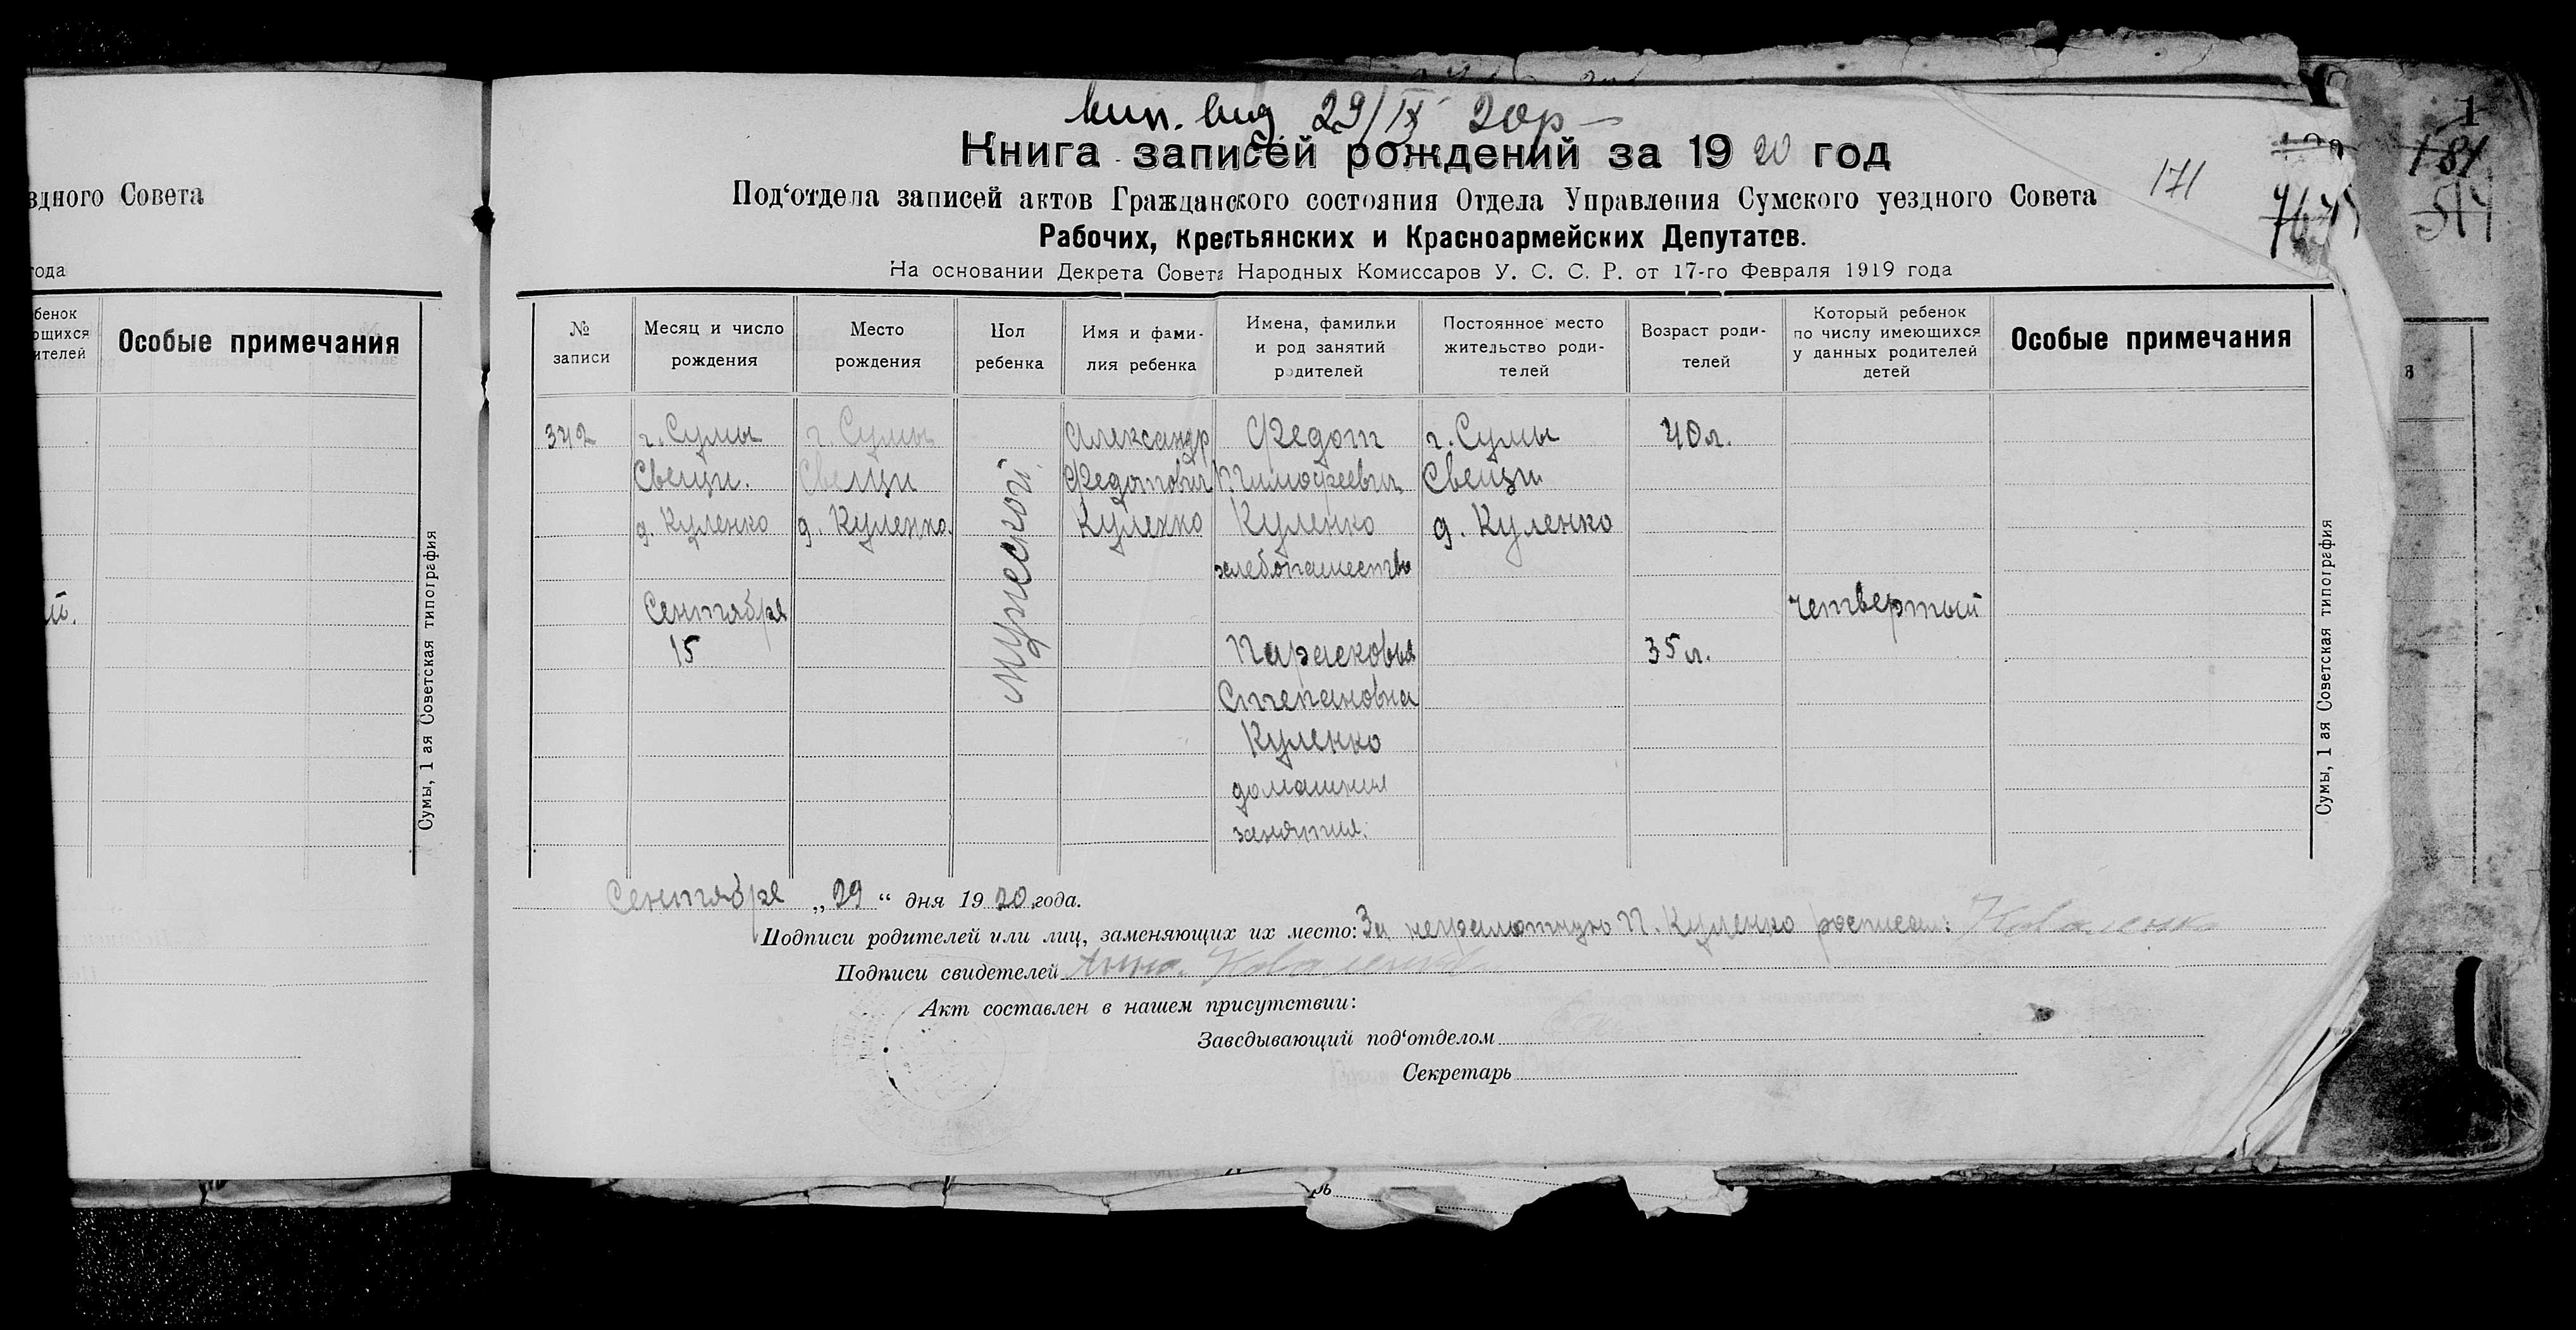 вип. вид 29/IX 20р
Книга записей рождений за 1920 год
Под‘отдела записей актов Гражданского состояния Отдела Управления Сумского уездного Совета
Рабочих, Крестьянских и Красноармейских Депутатов.
На основании Декрета Совета Народных Комиссаров У. С. С. Р. от 17-го Февраля 1919 года
171
181
здного Совета
года
бенок
ющихся
ителей
Особые примечания
Сумы, 1 ая Советская типография
№ записи
Месяц и число рождения
Место рождения
Пол ребенка
Имя и фами-
лия ребенка
Имена, фамилии
и род занятий
родителей
Постоянное место
жительство роди-
телей
Возраст роди-
телей
Который ребенок
по числу имеющихся
у данных родителей
детей
Особые примечания
342
г. Сумы
Свещи.
д. Куленко
Сентября
15
г. Сумы
Свещи
д. Куленко.
Мужеской.
Александр
Федотович
Куленко
Федот
Тимофеевич
Куленко
хлебопашество
Парасковья
Степановна
Куленко
домашния
занятия.
г. Сумы
Свещи
д. Куленко
40 л.
35 л.
четвертый
Сумы, 1 ая Советская типография
Сентября „29“ дня 1920 года.
Подписи родителей или лиц, заменяющих их место: За неграмотную П. Куленко росписал: Коваленко
Подписи свидетелей Коваленко
Акт составлен в нашем присутствии:
Заведывающий под‘отделом
Секретарь
рь